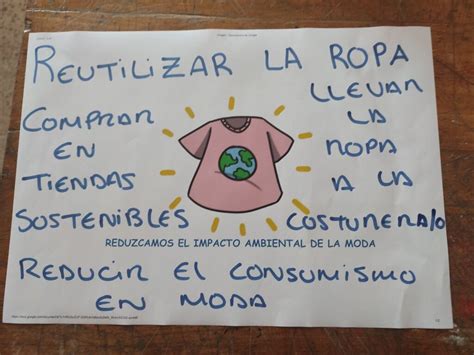 REUTILIZAR LA ROPA
COMPRAR
EN
TIENDAS
SOSTENIBLES
LLEVAR
LA
ROPA
A LA
COSTURERA/O
REDUZCAMOS EL IMPACTO AMBIENTAL DE LA MODA
REDUCIR EL CONSUMISMO
EN MODA